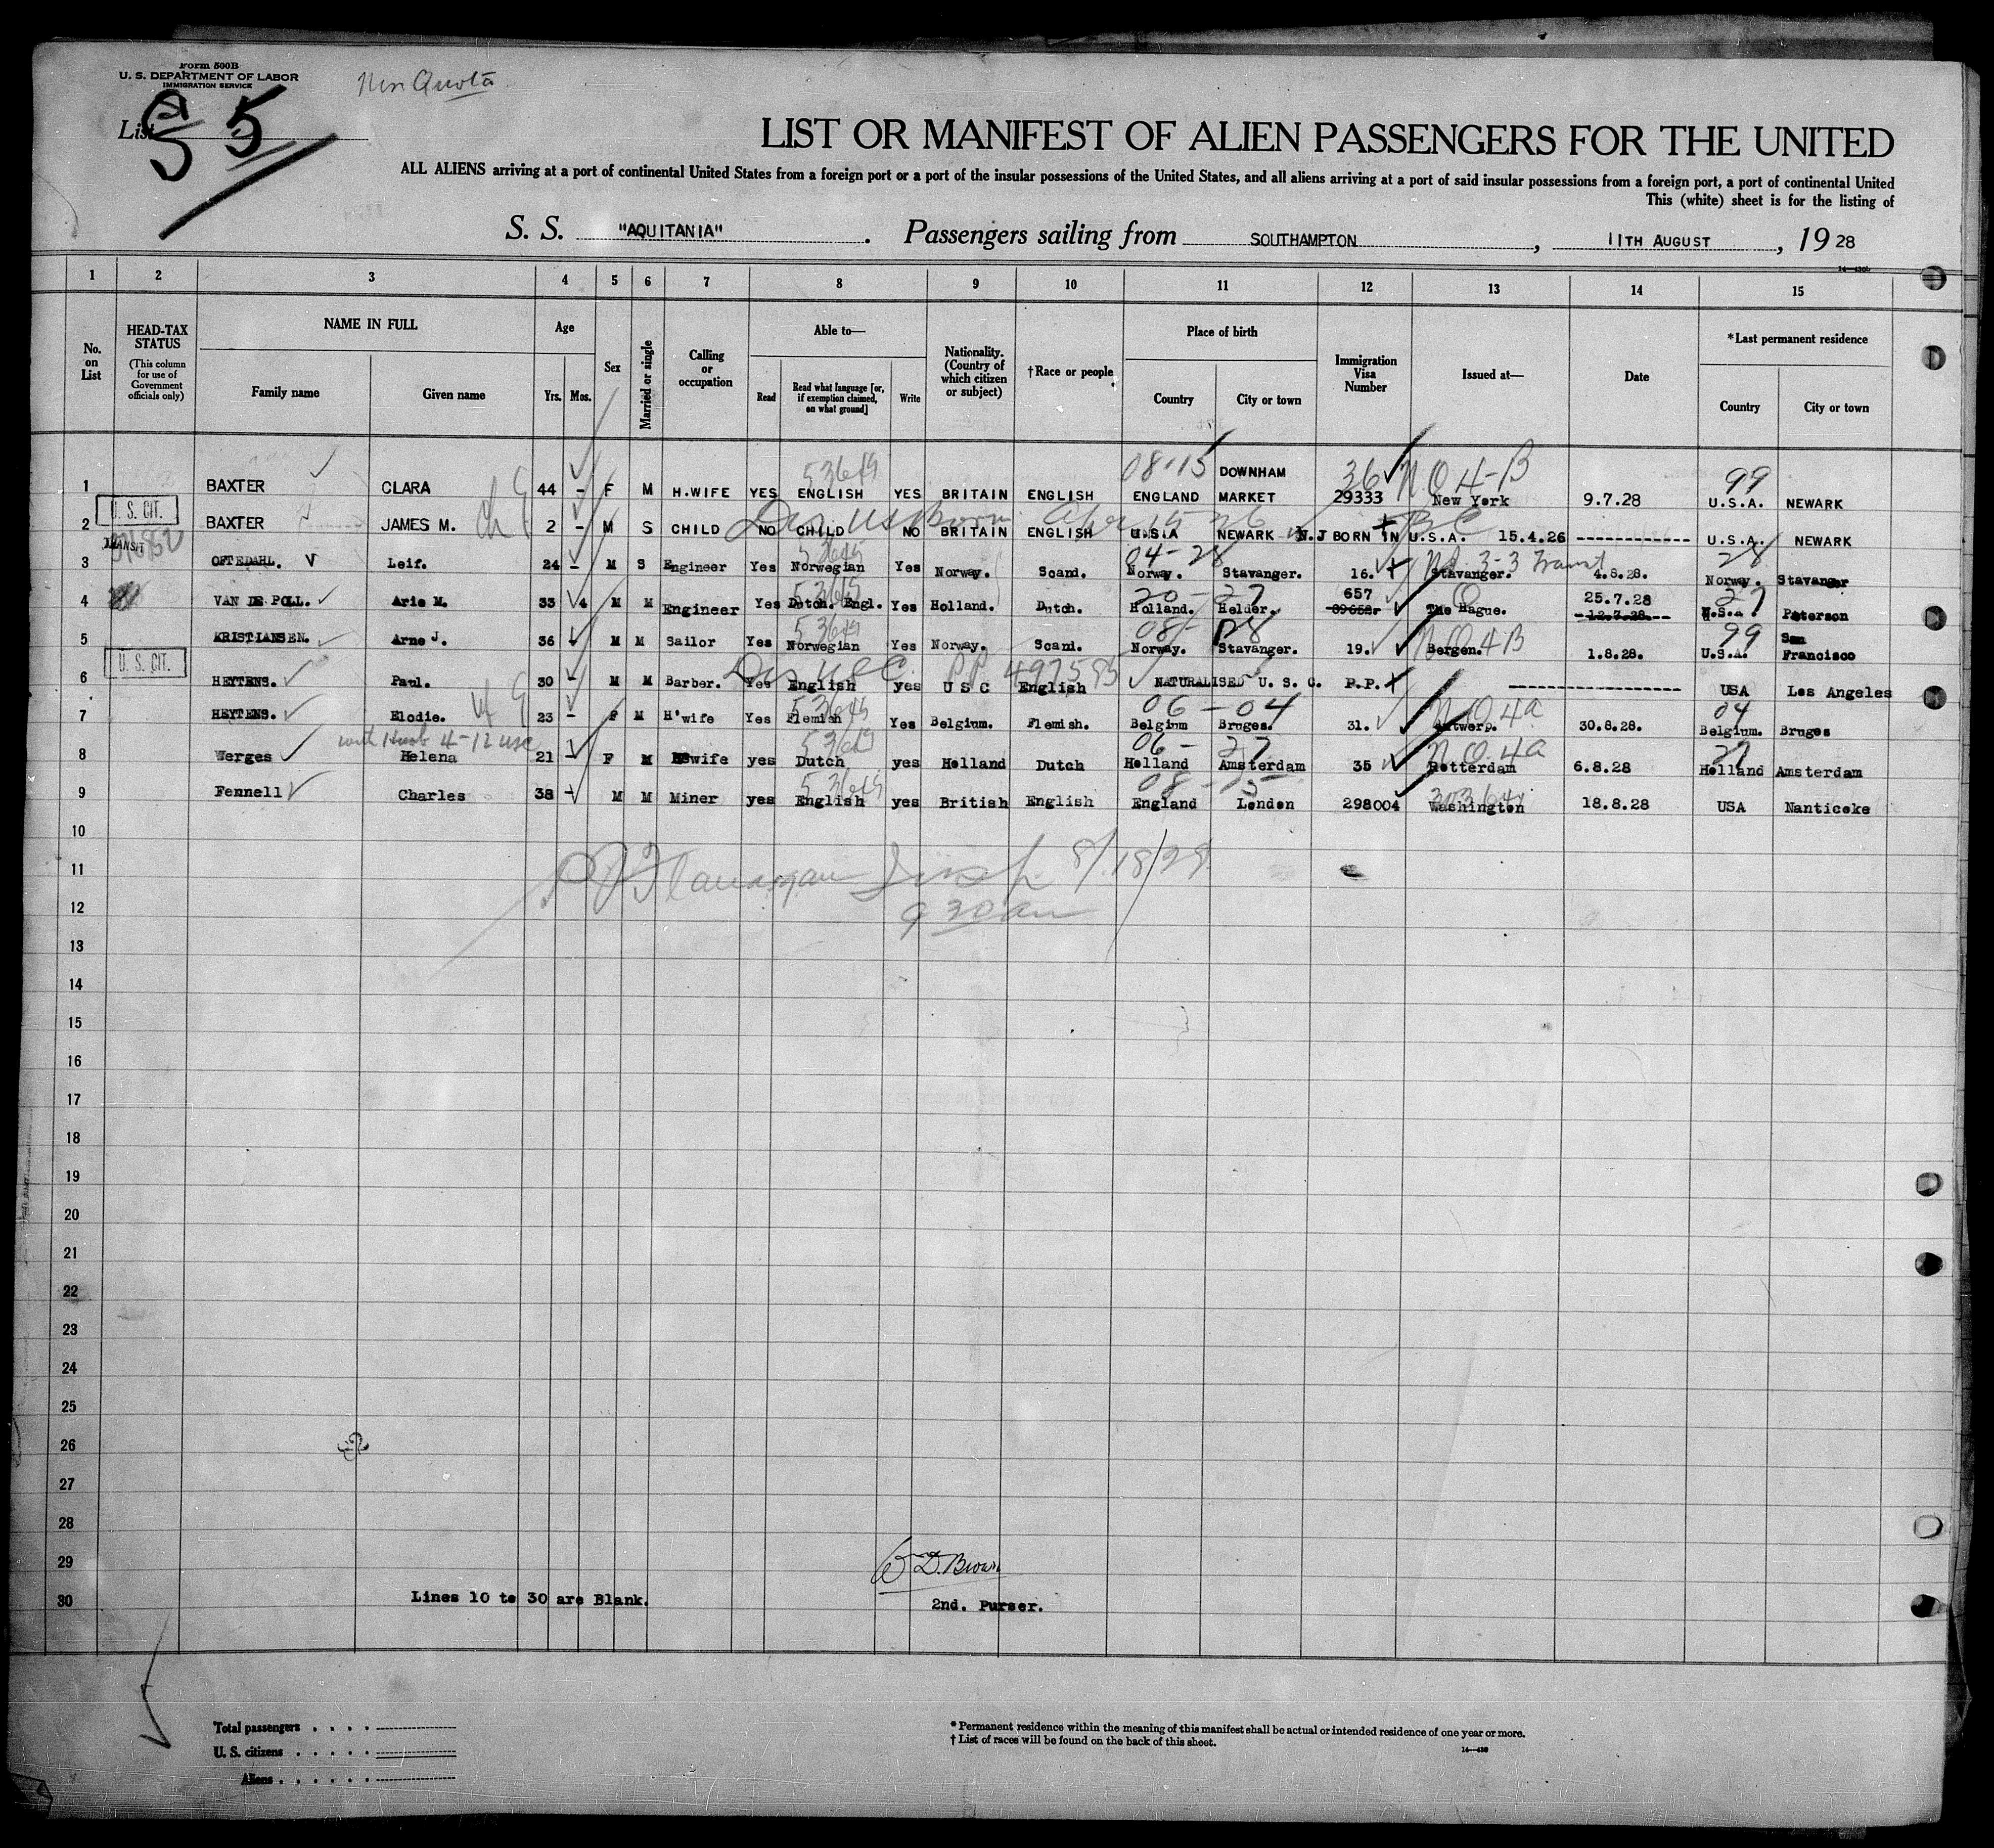 Form 500B
U. S. DEPARTMENT OF LABOR
IMMIGRATION SERVICE
Non Quota
List 5
LIST OR MANIFEST OF ALIEN PASSENGERS FOR THE UNITED
ALL ALIENS arriving at a port of continental United States from a foreign port or a port of the insular possessions of the United States, and all aliens arriving at a port of said insular possessions from a foreign port, a port of continental United
This (white) sheet is for the listing of
S. S. "AQUITANIA". Passengers sailing from SOUTHAMPTON, 11TH AUGUST, 19 28
1 2 3 4 5 6 7 8 9 10 11 12 13 14 15
No. on List
HEAD-TAX STATUS (This column for use of Government officials only)
NAME IN FULL
Family name
Given name
Age
Yrs. Mos.
Sex
Married or single
Calling or occupation
Able to—
Read
Read what language [or, if exemption claimed, on what ground]
Write
Nationality. (Country of which citizen or subject)
†Race or people
Place of birth
Country
City or town
Immigration Visa Number
Issued at—
Date
*Last permanent residence
Country
City or town
53649 08-15 36 N.O 4-B 99
1 BAXTER CLARA 44 - F M H.WIFE YES ENGLISH YES BRITAIN ENGLISH ENGLAND DOWNHAM MARKET 29333 New York 9.7.28 U.S.A. NEWARK
U. S. CIT.
2 BAXTER JAMES M. 2 - M S CHILD NO CHILD NO BRITAIN ENGLISH U.S.A NEWARK N.J BORN IN U.S.A. 15.4.26 ------------ U.S.A. NEWARK
TRANSIT
04-28 3-3 Transit 28
3 OFTEDAHL. Leif. 24 - M S Engineer Yes Norwegian Yes Norway. Scand. Norway. Stavanger. 16. Stavanger. 4.8.28. Norway. Stavanger
20-27 27
4 VAN DE POLL. Arie M. 33 4 M M Engineer Yes Dutch. Engl. Yes Holland. Dutch. Holland. Helder. 657 89658. The Hague. 25.7.28 12.7.28. U.S.A. Paterson
99
5 KRISTIANSEN. Arne J. 36 - M M Sailor Yes Norwegian Yes Norway. Scand. Norway. Stavanger. 19. Bergen. 1.8.28. U.S.A. San Francisco
U. S. CIT.
6 HEYTENS. Paul. 30 - M M Barber. Yes English yes U S C English NATURALISED U. S. C. P.P. ------------------ USA Los Angeles
06-04 N.O.4a 04
7 HEYTENS. Elodie. 23 - F M H'wife Yes Flemish Yes Belgium. Flemish. Belgium Bruges. 31. Antwerp. 30.8.28. Belgium. Bruges
with Husb 4-12 USC 06-27 N.O.4a 27
8 Werges Helena 21 - F M H'wife yes Dutch yes Holland Dutch Holland Amsterdam 35 Rotterdam 6.8.28 Holland Amsterdam
08-15
9 Fennell Charles 38 - M M Miner yes English yes British English England London 298004 Washington 18.8.28 USA Nanticoke
10
11 Flanagan Insp. 8/18/28
12 9 30 am
13
14
15
16
17
18
19
20
21
22
23
24
25
26
27
28
29 W D. Brown
30 Lines 10 to 30 are Blank. 2nd. Purser.
Total passengers . . . .
U. S. citizens . . . . .
Aliens . . . . . .
* Permanent residence within the meaning of this manifest shall be actual or intended residence of one year or more.
† List of races will be found on the back of this sheet.
14—430